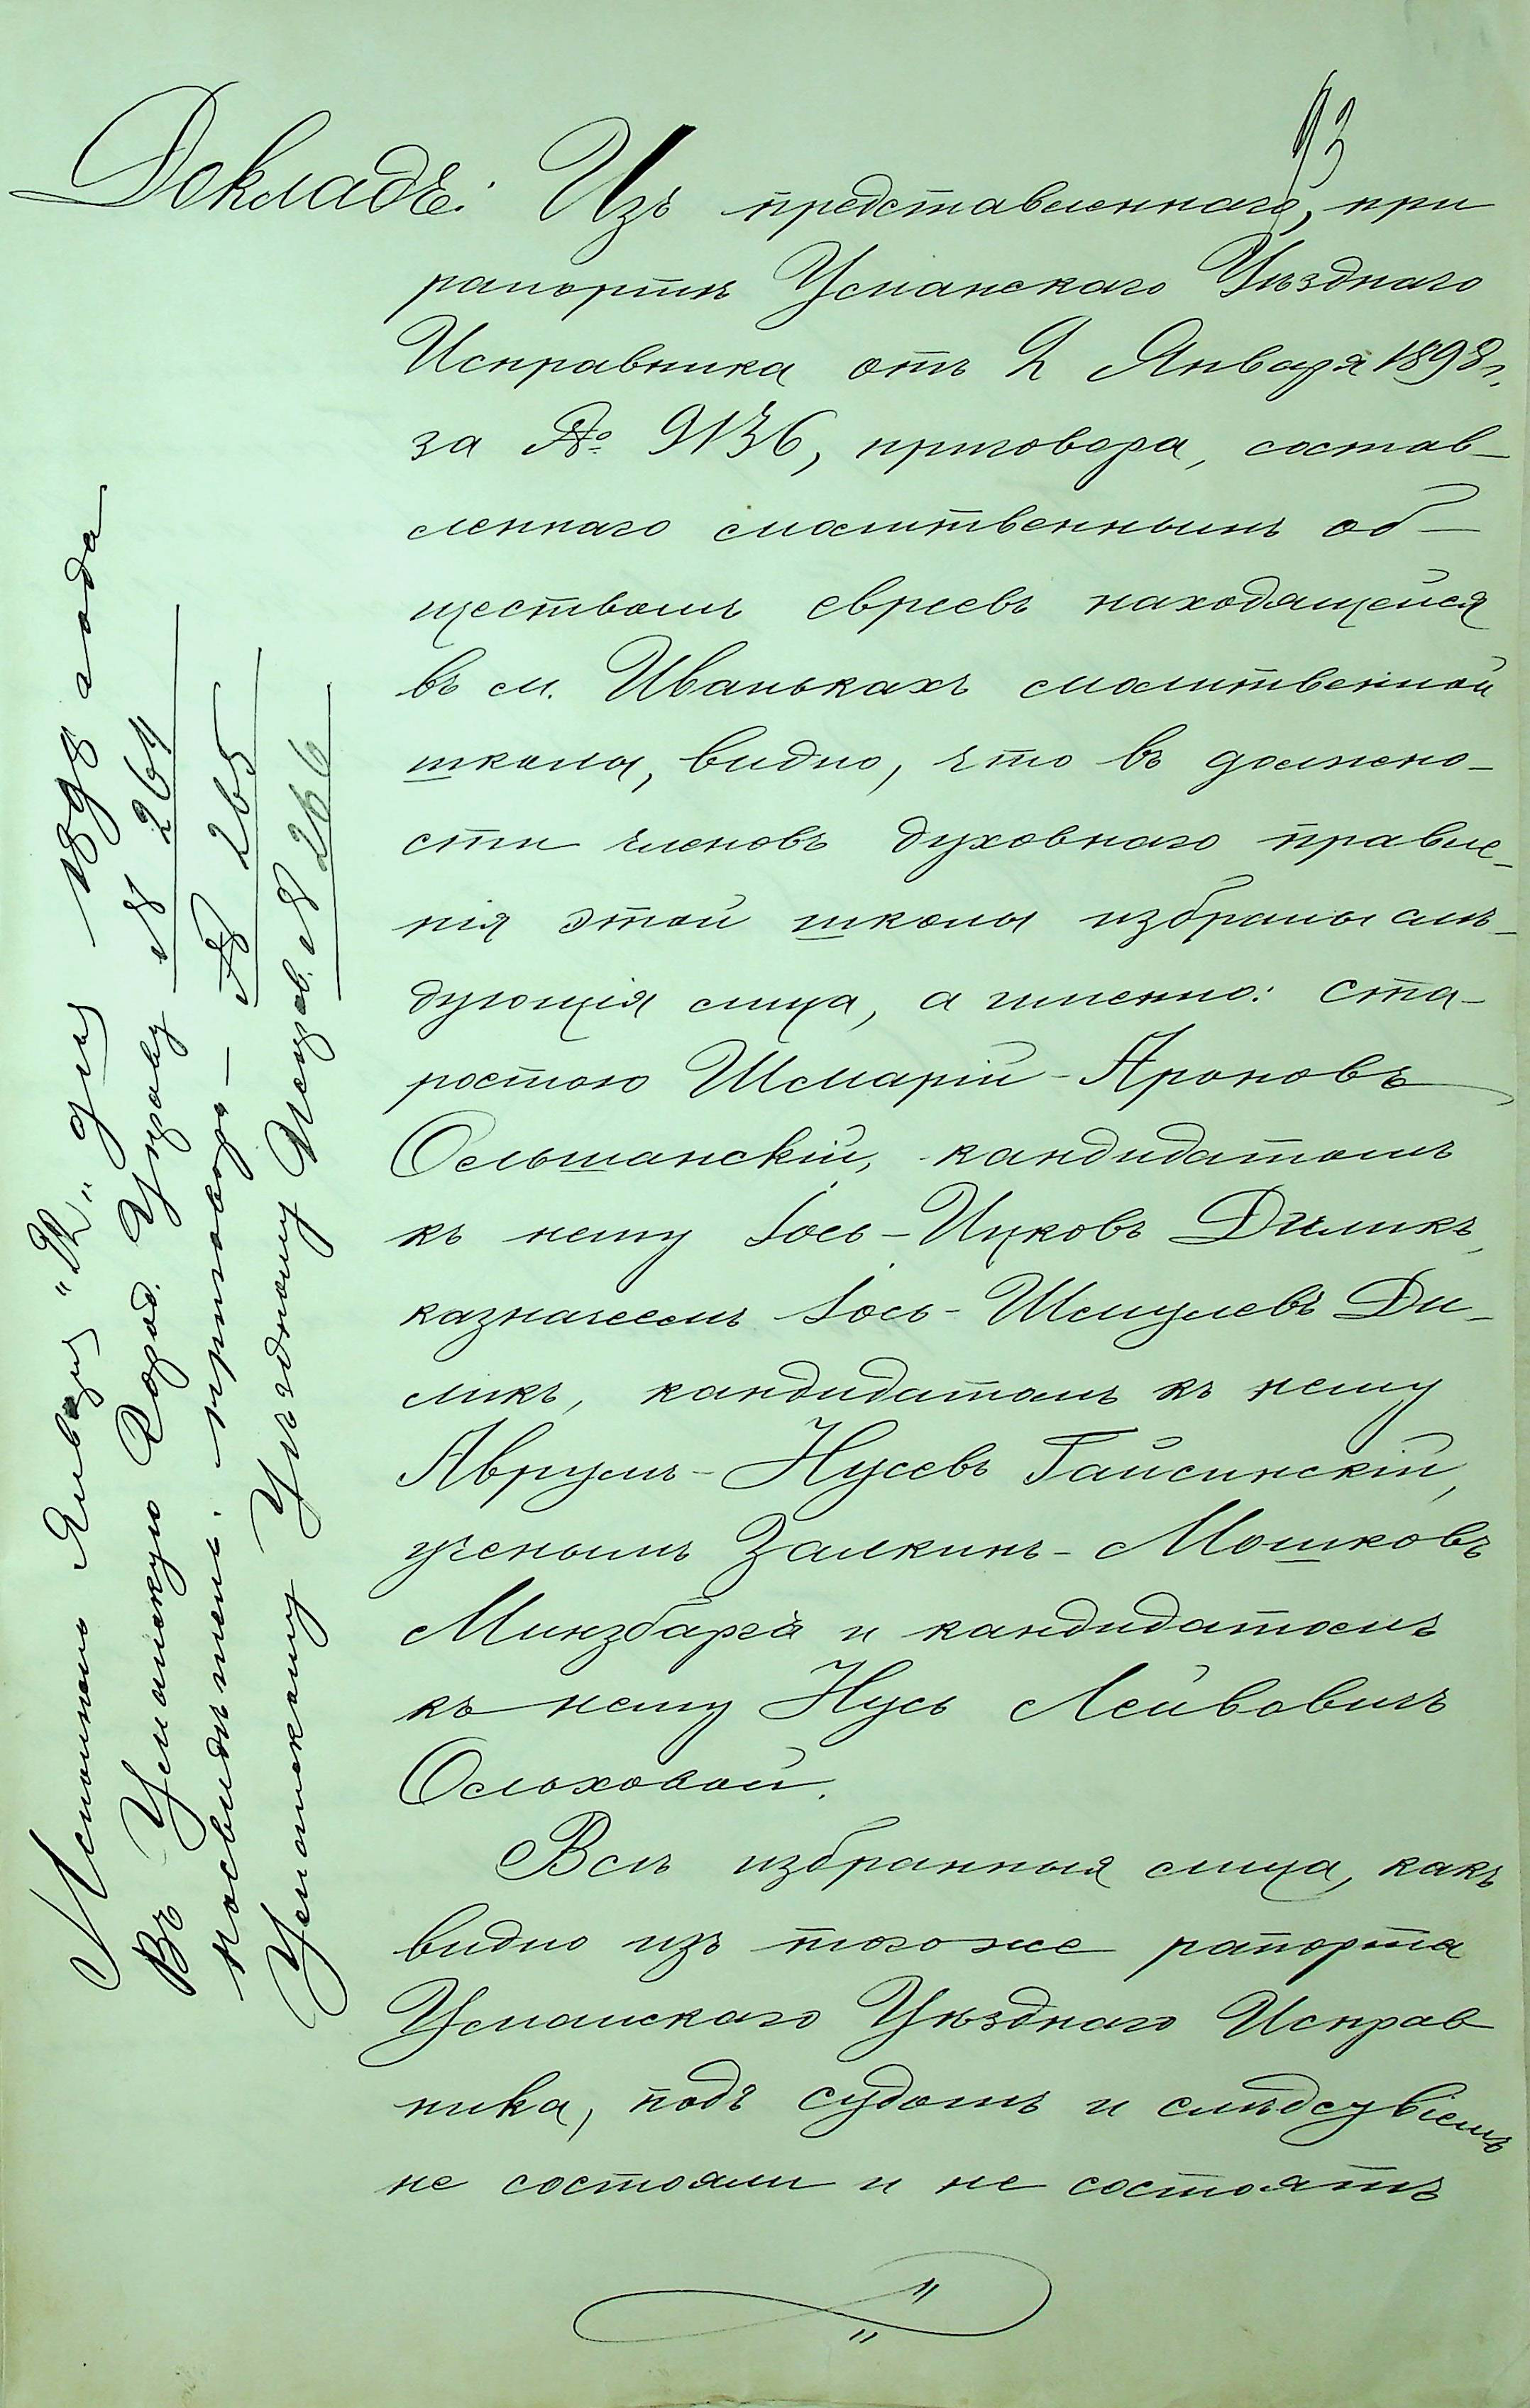 93
Докладъ: Изъ представленнаго, при
рапортѣ Уманскаго Уѣзднаго
Исправника отъ 2 Января 1898 г.
за № 9136, приговора, состав-
леннаго молитвеннымъ об-
ществомъ евреевъ находящейся
въ м. Иванькахъ молитвенной
школы, видно, что въ должно-
сти членовъ духовнаго правле-
нія этой школы избраны слѣ-
дующія лица, а именно: ста-
ростою Шмарій-Ароновъ
Ольшанскій, кандидатомъ
къ нему Іось-Ицковъ Диликъ,
казначеемъ Іось-Шмулевъ Ди-
ликъ, кандидатомъ къ нему
Аврумъ-Нусевъ Гайсинскій,
ученымъ Залкинъ-Мошковъ
Минзбаргъ и кандидатомъ
къ нему Нусь Лейбовичъ
Ольховой.
Всѣ избранныя лица, какъ
видно изъ того же рапорта
Уманскаго Уѣзднаго Исправ
ника, подъ судомъ и слѣдсувіемъ
не состояли и не состоятъ
Исполнено Января "12" дня 1898 года
Въ Уманскую Город. Управу № 264
посвидѣтел. приговора — № 265
Уманскому Уѣздному Исправ. № 266